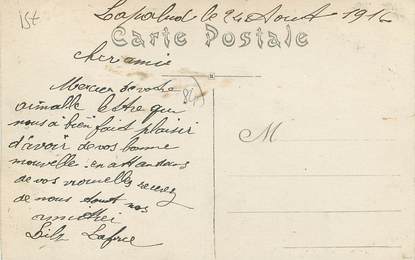 15t
Lapalud le 24 Aout 1916
Carte Postale
cher amie
849
Mercier de votre
aimalle lettre que
nous a bien fait plaisir
d'avoir de vos bonne
nouvelle. en attendans
de vos nouvelles recevez
de nous tout nos
amitiei
Laforce
M